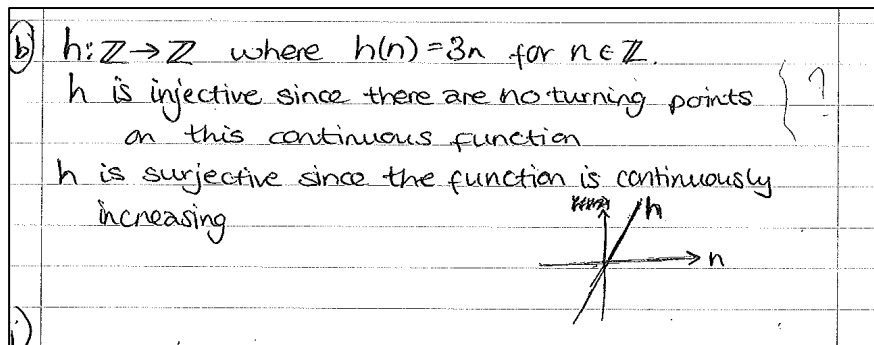 b) h: ℤ → ℤ where h(n) = 3n for n ∈ ℤ.
h is injective since there are no turning points } ?
on this continuous function
h is surjective since the function is continuously
increasing
h
n
i)